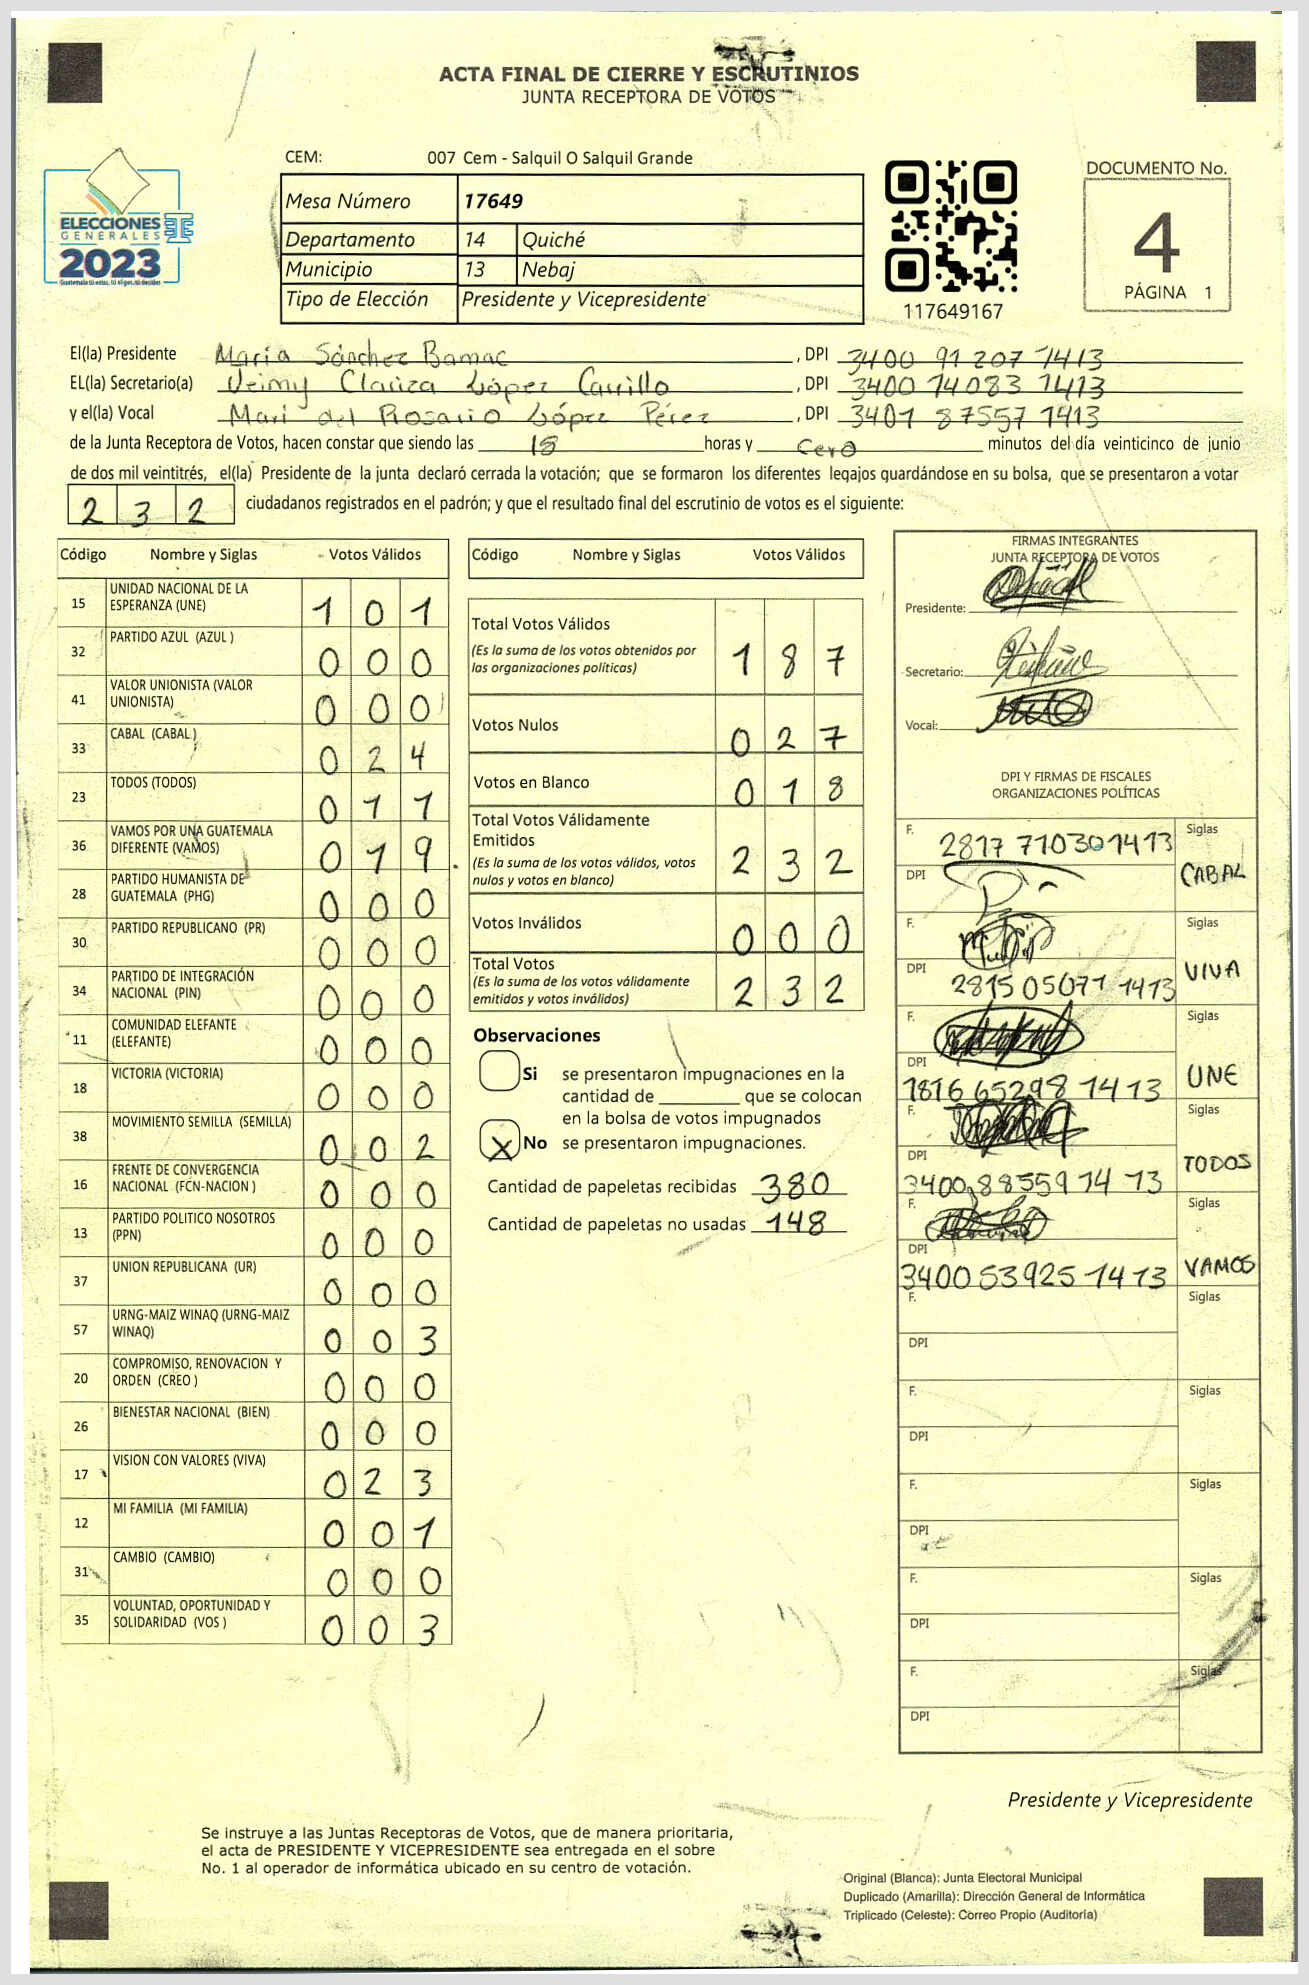 ACTA FINAL DE CIERRE Y ESCRUTINIOS
JUNTA RECEPTORA DE VOTOS
ELECCIONES
GENERALES
2023
CEM: 007 Cem - Salquil O Salquil Grande
Mesa Número 17649
Departamento 14 Quiché
Municipio 13 Nebaj
Tipo de Elección Presidente y Vicepresidente
117649167
DOCUMENTO No.
4
PÁGINA 1
El(la) Presidente María Sánchez Bamac, DPI 3400 91 207 1413
EL(la) Secretario(a) Veimy Clariza López Carrillo, DPI 3400 14083 1413
y el(la) Vocal Mari del Rosario López Pérez, DPI 3401 87557 1413
de la Junta Receptora de Votos, hacen constar que siendo las 18 horas y cero minutos del día veinticinco de junio
de dos mil veintitrés, el(la) Presidente de la junta declaró cerrada la votación; que se formaron los diferentes legajos guardándose en su bolsa, que se presentaron a votar
232 ciudadanos registrados en el padrón; y que el resultado final del escrutinio de votos es el siguiente:
Código Nombre y Siglas Votos Válidos
15 UNIDAD NACIONAL DE LA ESPERANZA (UNE) 1 0 1
32 PARTIDO AZUL (AZUL ) 0 0 0
41 VALOR UNIONISTA (VALOR UNIONISTA) 0 0 0
33 CABAL (CABAL ) 0 2 4
23 TODOS (TODOS) 0 1 1
36 VAMOS POR UNA GUATEMALA DIFERENTE (VAMOS) 0 1 9
28 PARTIDO HUMANISTA DE GUATEMALA (PHG) 0 0 0
30 PARTIDO REPUBLICANO (PR) 0 0 0
34 PARTIDO DE INTEGRACIÓN NACIONAL (PIN) 0 0 0
11 COMUNIDAD ELEFANTE (ELEFANTE) 0 0 0
18 VICTORIA (VICTORIA) 0 0 0
38 MOVIMIENTO SEMILLA (SEMILLA) 0 0 2
16 FRENTE DE CONVERGENCIA NACIONAL (FCN-NACION ) 0 0 0
13 PARTIDO POLITICO NOSOTROS (PPN) 0 0 0
37 UNION REPUBLICANA (UR) 0 0 0
57 URNG-MAIZ WINAQ (URNG-MAIZ WINAQ) 0 0 3
20 COMPROMISO, RENOVACION Y ORDEN (CREO ) 0 0 0
26 BIENESTAR NACIONAL (BIEN) 0 0 0
17 VISION CON VALORES (VIVA) 0 2 3
12 MI FAMILIA (MI FAMILIA) 0 0 1
31 CAMBIO (CAMBIO) 0 0 0
35 VOLUNTAD, OPORTUNIDAD Y SOLIDARIDAD (VOS ) 0 0 3
Código Nombre y Siglas Votos Válidos
Total Votos Válidos 1 8 7
(Es la suma de los votos obtenidos por
las organizaciones políticas)
Votos Nulos 0 2 7
Votos en Blanco 0 1 8
Total Votos Válidamente
Emitidos 2 3 2
(Es la suma de los votos válidos, votos
nulos y votos en blanco)
Votos Inválidos 0 0 0
Total Votos 2 3 2
(Es la suma de los votos válidamente
emitidos y votos inválidos)
Observaciones
Si se presentaron impugnaciones en la
cantidad de ________ que se colocan
en la bolsa de votos impugnados
X No se presentaron impugnaciones.
Cantidad de papeletas recibidas 380
Cantidad de papeletas no usadas 148
FIRMAS INTEGRANTES
JUNTA RECEPTORA DE VOTOS
Presidente:
Secretario:
Vocal:
DPI Y FIRMAS DE FISCALES
ORGANIZACIONES POLÍTICAS
F. 2817 71030 1413 Siglas
DPI CABAL
F. Siglas
DPI 2815 05071 1413 VIVA
F. Siglas
DPI 1816 65298 1413 UNE
F. Siglas
DPI 3400 88559 1413 TODOS
F. Siglas
DPI 3400 53925 1413 VAMOS
F. Siglas
DPI
F. Siglas
DPI
F. Siglas
DPI
F. Siglas
DPI
F. Siglas
DPI
Presidente y Vicepresidente
Se instruye a las Juntas Receptoras de Votos, que de manera prioritaria,
el acta de PRESIDENTE Y VICEPRESIDENTE sea entregada en el sobre
No. 1 al operador de informática ubicado en su centro de votación.
Original (Blanca): Junta Electoral Municipal
Duplicado (Amarilla): Dirección General de Informática
Triplicado (Celeste): Correo Propio (Auditoría)